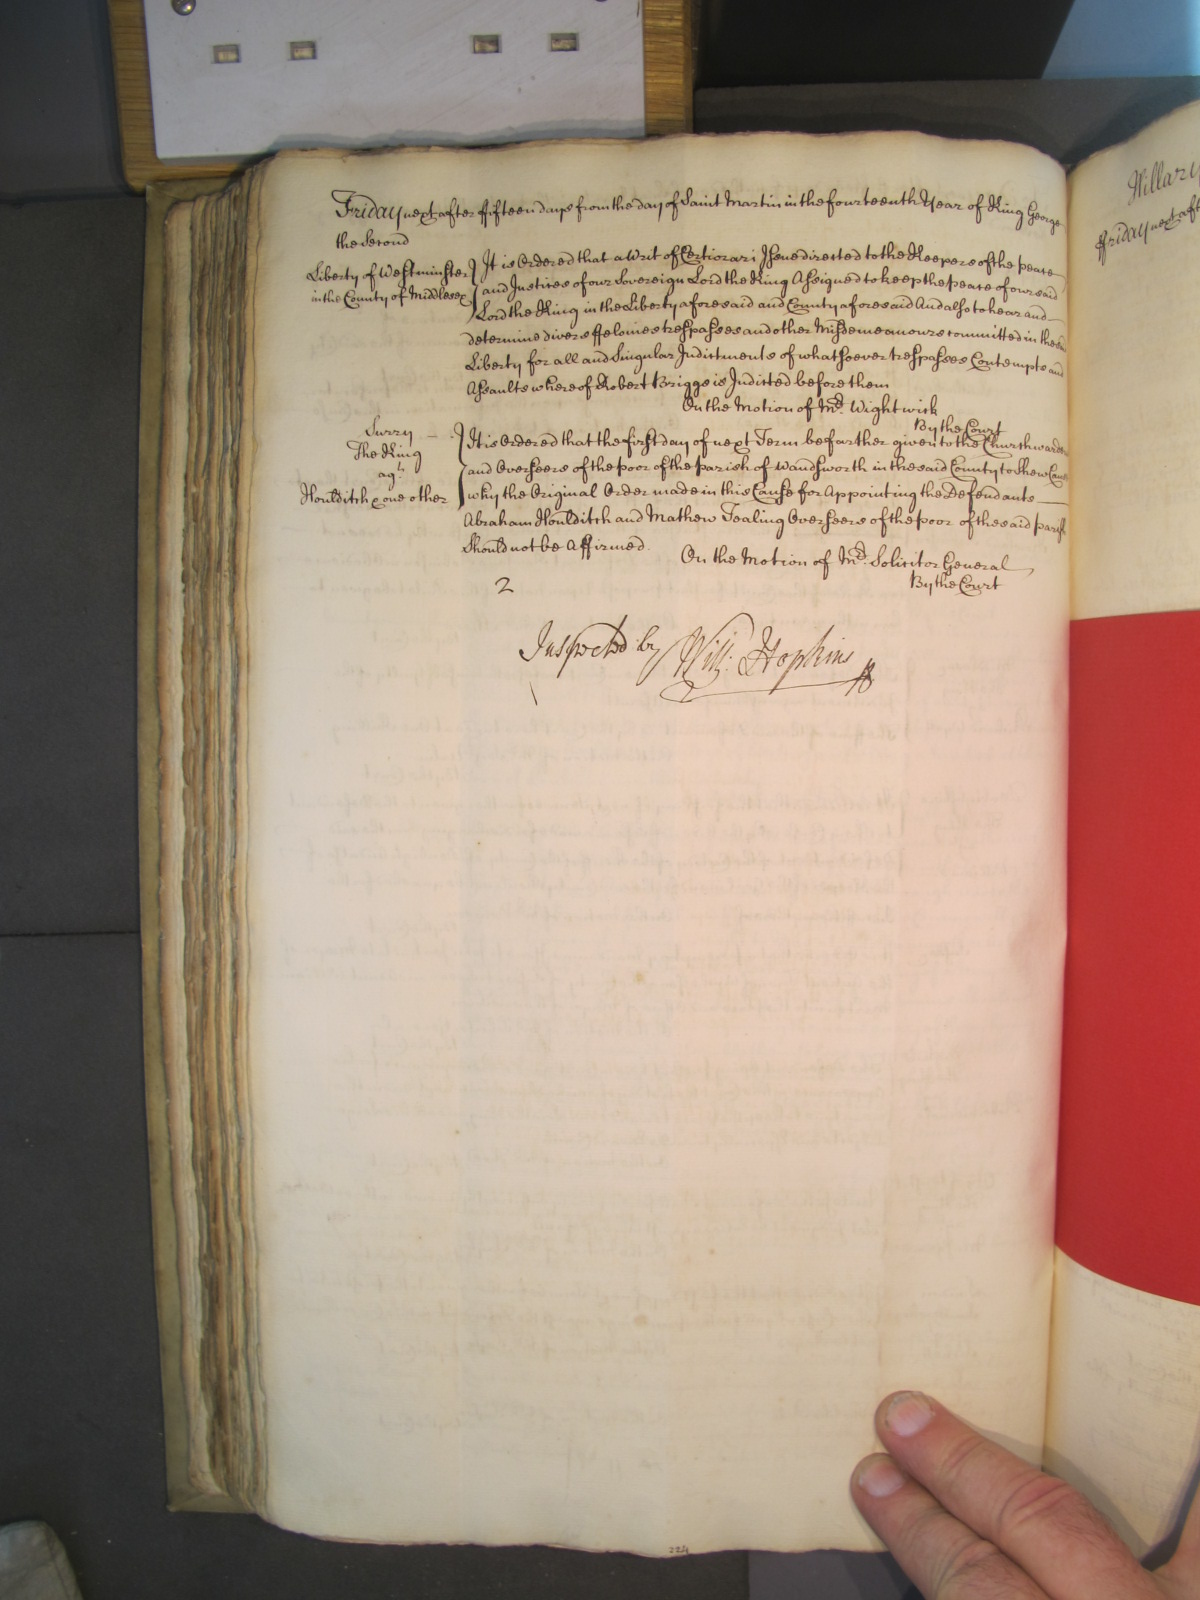 Friday next after fifteen days from the day of Saint Martin in the fourteenth Year of King George
the Second
Liberty of Westminster
in the County of Middlesex
It is Ordered that a Writ of Certiorari Issue directed to the Keepers of the peace
and Justices of our Sovereign Lord the King Assigned to keep the peace of our said
Lord the King in the Liberty aforesaid and County aforesaid And also to hear and
determine divers ffelonies trespasses and other Misdemeanours committed in the said
Liberty for all and Singular Indictments of whatsoever trespasses Contempts and
Assaults whereof Robert Briggs is Indicted before them
On the Motion of Mr. Wightwick
By the Court
Surry
The King
agt.
Houlditch & one other
It is Ordered that the first day of next Term be further given to the Churchwardens
and Overseers of the poor of the parish of Wandsworth in the said County to Shew Cause
why the Original Order made in this Cause for Appointing the Defendants
Abraham Houlditch and Mathew Tealing Overseers of the poor of the said parish
Should not be Affirmed.
On the Motion of Mr. Solicitor General
By the Court
2
Inspected by Will: Hopkins
224
Hillary
ffriday next aft